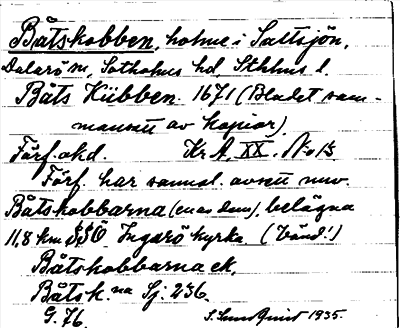 Båtskobben, holme i Saltsjön,
Dalarö sn, Sotholms hd Sthlms l.
Båts Kübben 1671 (Bladet sam-
mansatt av kopior).
Förf. okd. Kr A, XX. No 13
Förf. har sannol. avsett nuv.
Båtskobbarna (en av dem), belägna
11,8 km SSÖ Ingarö kyrka. (Vånd!)
Båtskobbarna ek.
Båtsk.na Sj. 236.
G. 76. 1935.